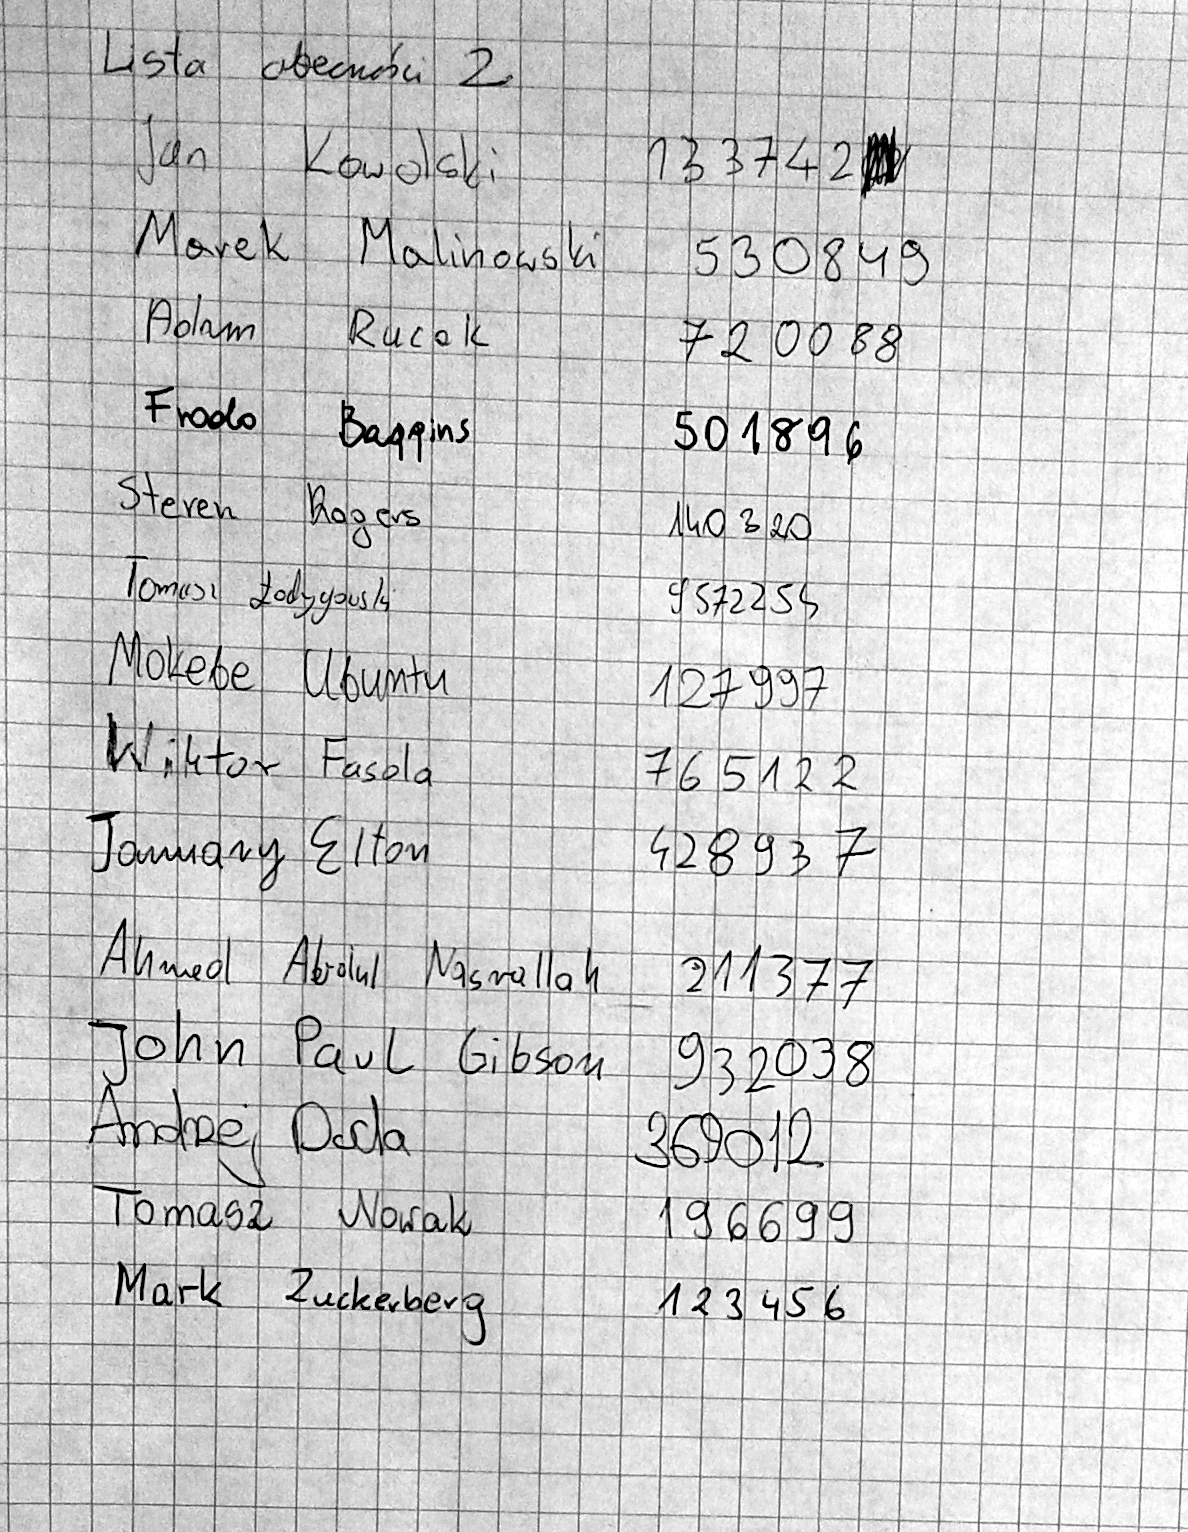 Lista obecności 2
Jan Kowalski 133742
Marek Malinowski 530849
Adam Rucak 720088
Frodo Baggins 501896
Steven Rogers 140320
Tomasz Łodygowski 9572254
Mokebe Ubuntu 127997
Wiktor Fasola 765122
January Elton 428937
Ahmed Abdul Nasrallah 211377
John Paul Gibson 932038
Andrzej Duda 369012
Tomasz Nowak 196699
Mark Zuckerberg 123456